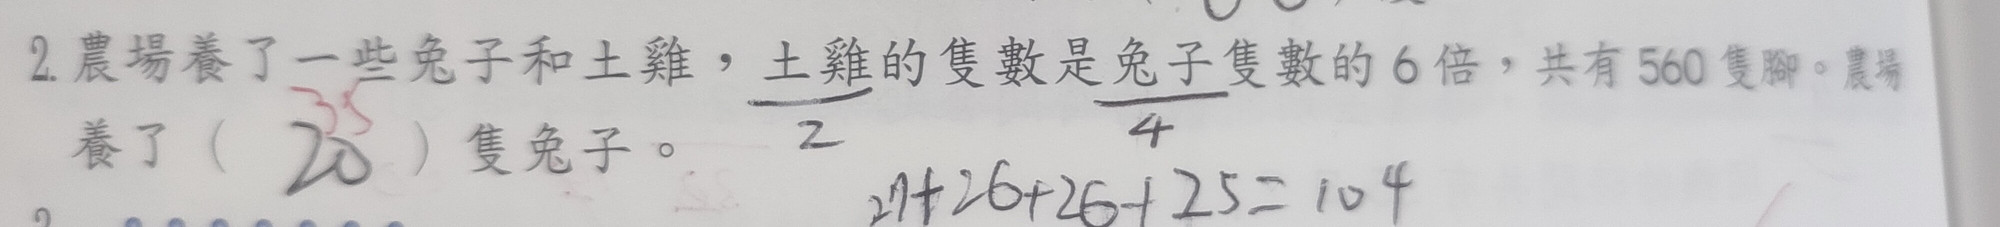 2. 農場養了一些兔子和土雞，土雞的隻數是兔子隻數的6倍，共有560隻腳。農場
35
養了（ 20 ）隻兔子。 2 4
27+26+26+25=104